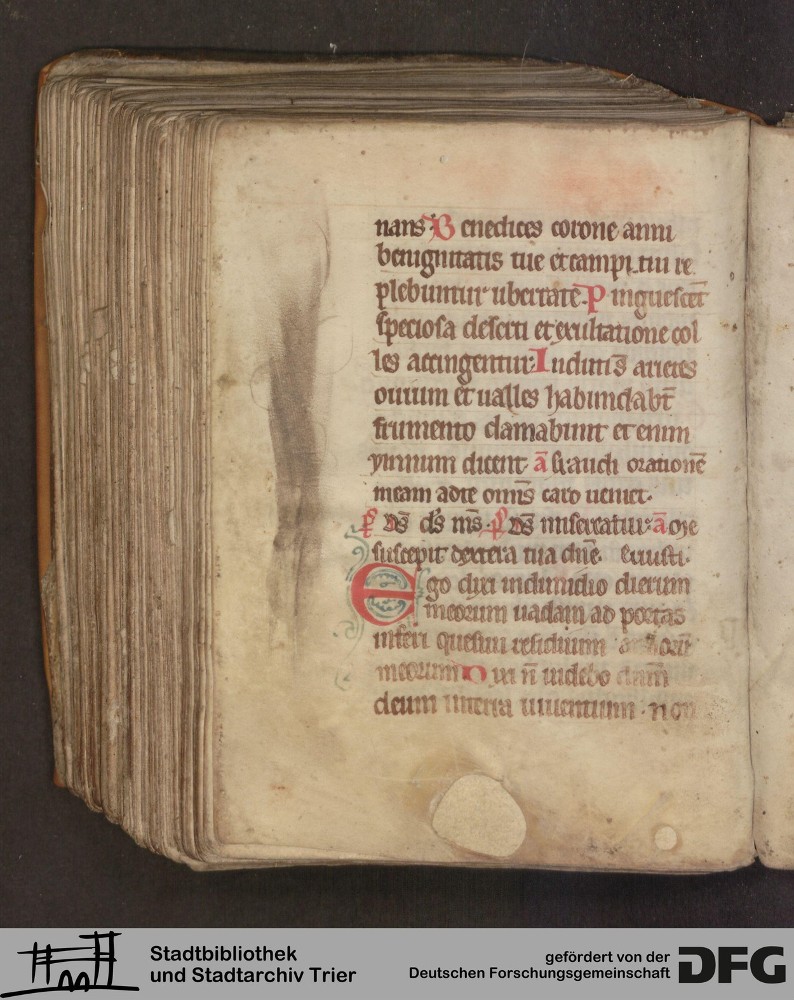 nans· Benedices corone anni
benignitatis tue et campi tui re
plebuntur ubertate. Pinguescēt
speciosa deserti et exultatione col
les accingentur: Induti sʒ arietes
ouium et ualles habundabt̄
frumento clamabunt et enim
ymnum dicent· ā Exaudi orationē
meam ad te om̄s caro ueniet·
p̄s Ds̄ ds̄ ms̄· p̄s Ds̄ misereatur· ā Me
suscepit dextera tua dn̄e·
Ego dixi in dimidio dierum
meorum uadam ad portas
inferi quesiui residuum
meorum Dixi n̄ uidebo dn̄m
deum in terra uiuentium· non
Stadtbibliothek
und Stadtarchiv Trier
gefördert von der
Deutschen Forschungsgemeinschaft
DFG